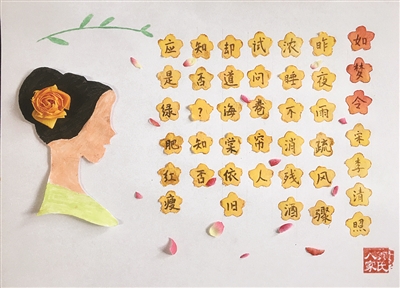 如梦令宋李清照
昨夜雨疏风骤
浓睡不消残酒
试问卷帘人
却道海棠依旧
知否？知否
应是绿肥红瘦